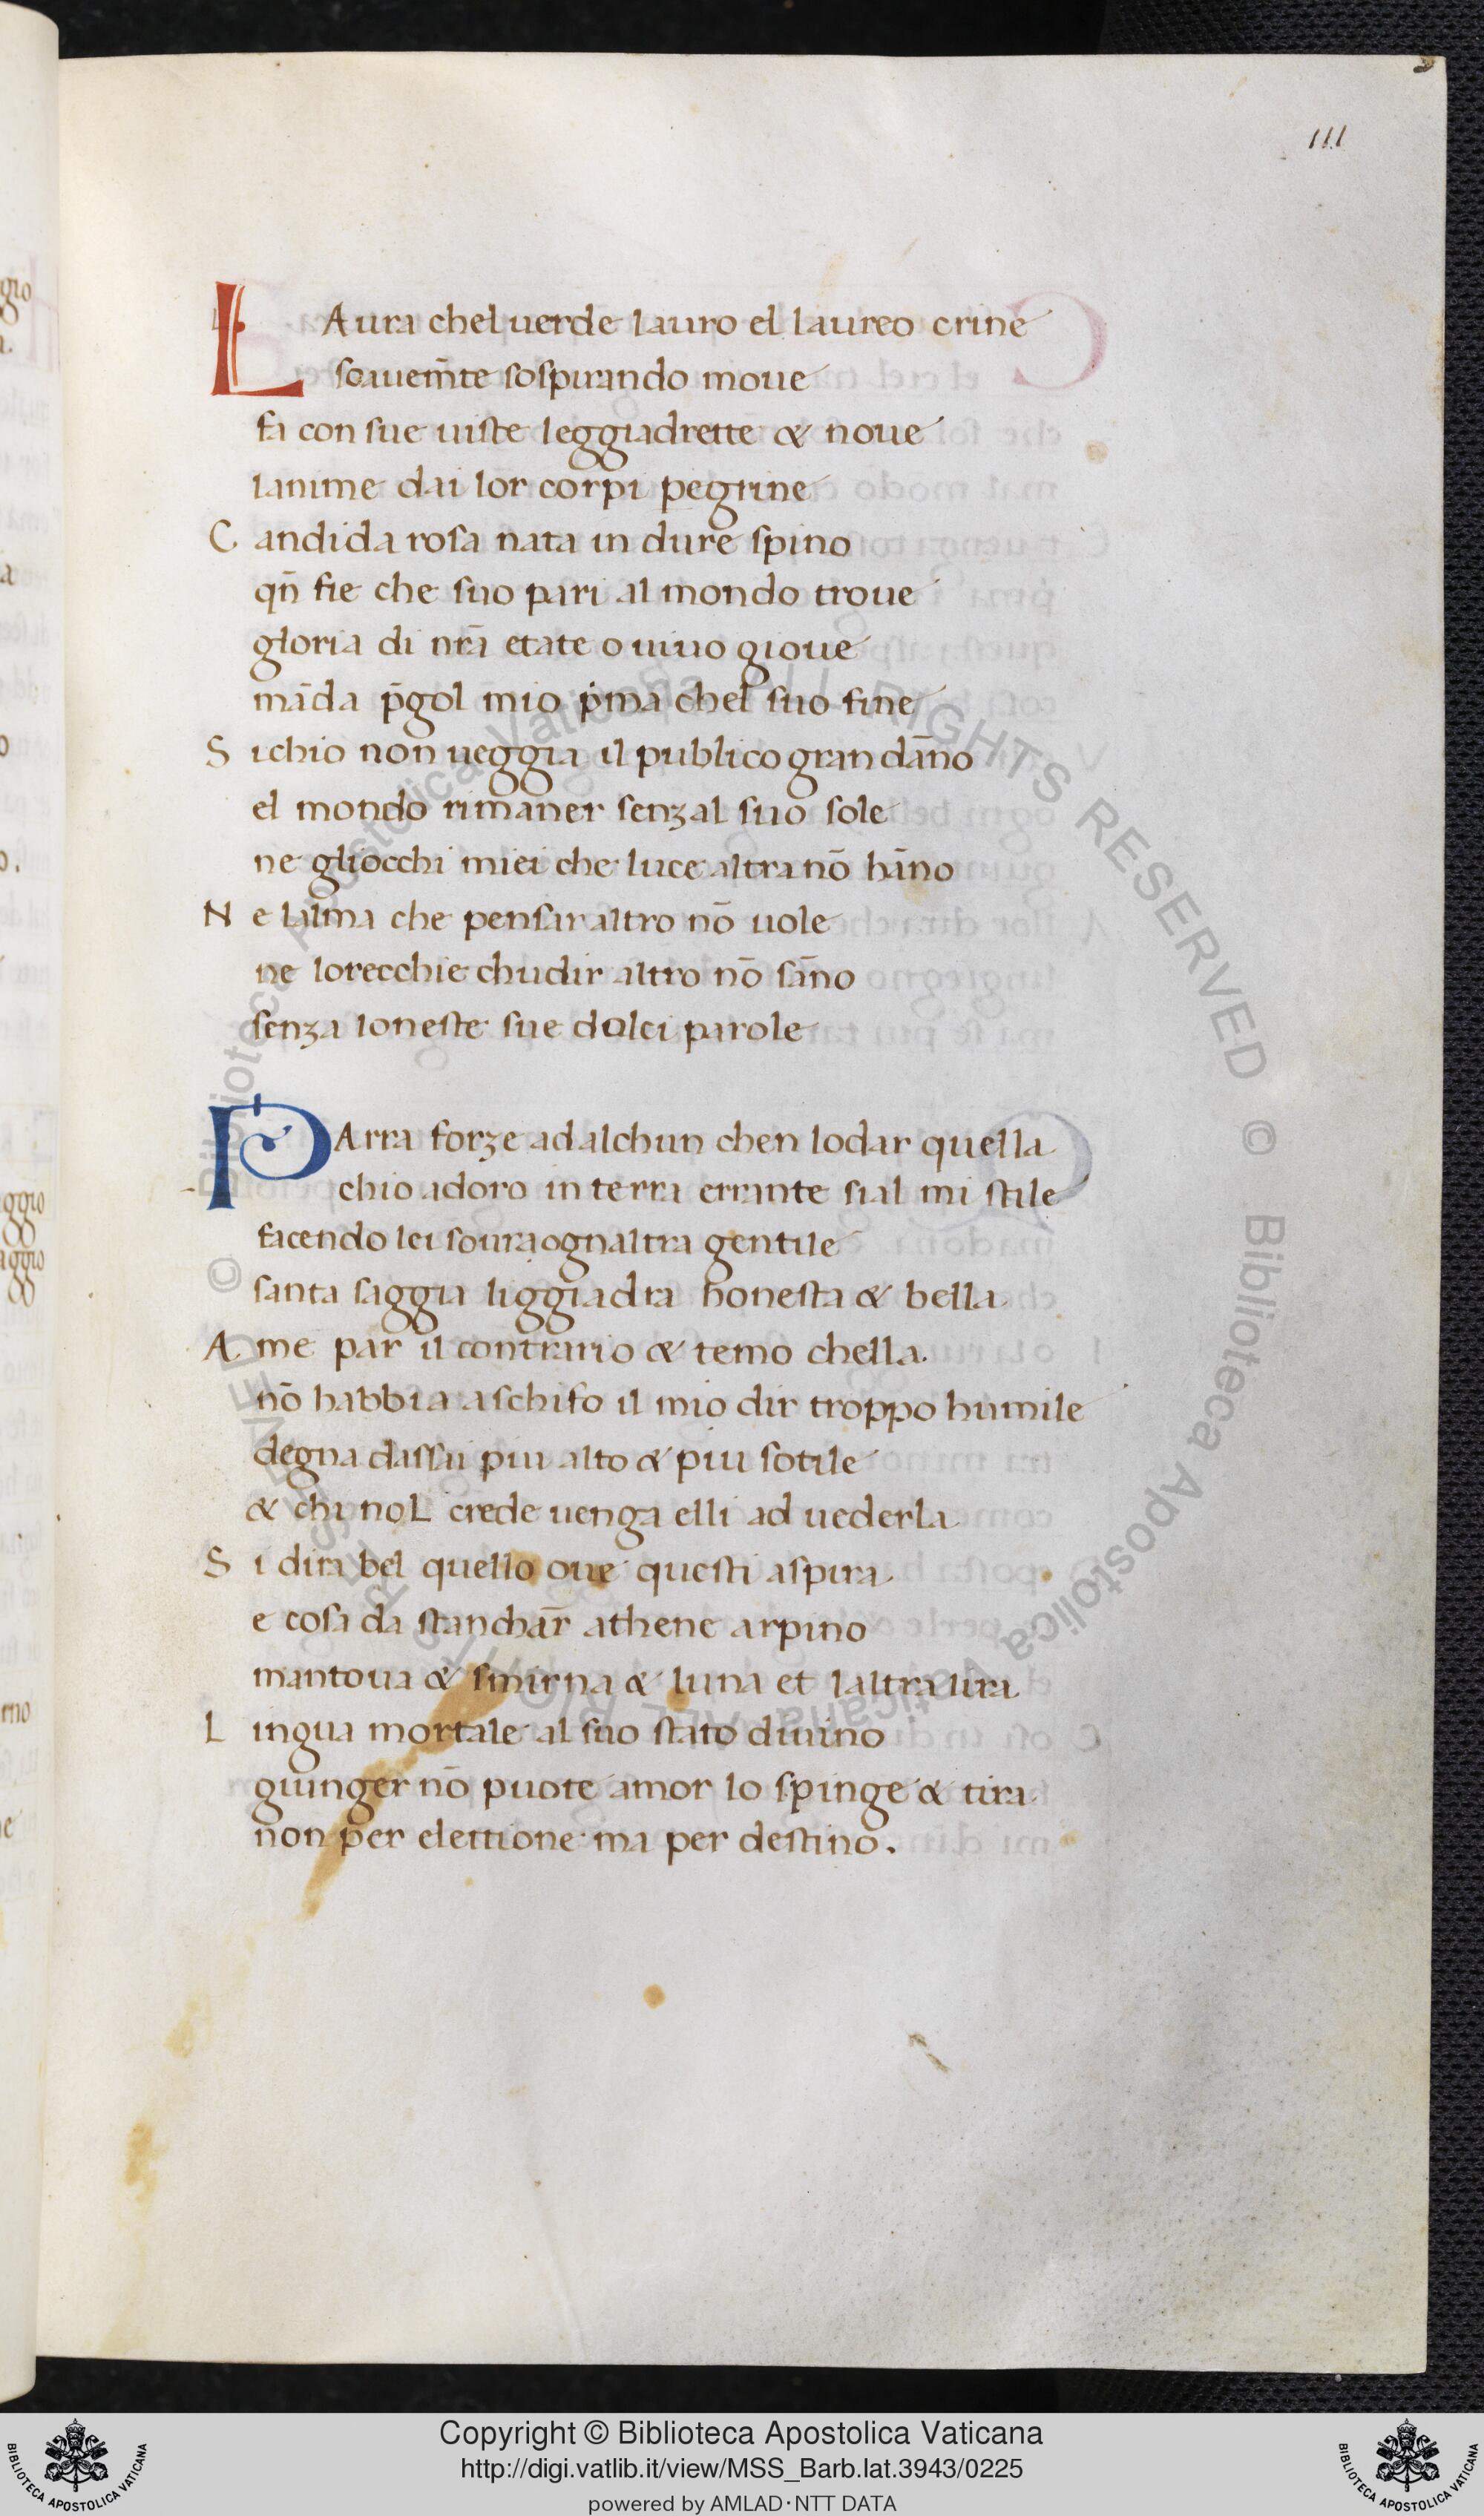 111
LAura chel uerde lauro el laureo crine
soauem̄te sospirando moue
fa con sue uiste leggiadrette & noue
lanime dai lor corpi pegrine
C andida rosa nata in dure spino
qn̄ fie che suo pari al mondo troue
gloria di nrā etate o uiuo gioue
māda p̄gol mio pͥma chel suo fine
S ichio non ueggia il publico gran dāno
el mondo rimaner senzal suo sole
ne gliocchi miei che luce altra nō hāno
N e lalma che pensar altro nō uole
ne lorecchie chudir altro nō sāno
senza loneste sue dolci parole
PArra forze ad alchun chen lodar quella
chio adoro in terra errante sial mi stile
facendo lei soura ognaltra gentile
santa saggia liggiadra honesta & bella
A me par il contrario & temo chella.
nō habbia a schifo il mio dir troppo humile
degna dassai piu alto & piu sotile
& chi nol crede uenga elli ad uederla
S i dira bel quello oue questi aspira
e cosa da stanchar̄ athene arpino
mantoua & smirna & luna et laltra lira
L ingua mortale al suo stato diuino
giunger nō puote amor lo spinge & tira
non per elettione ma per destino.
Copyright © Biblioteca Apostolica Vaticana
http://digi.vatlib.it/view/MSS_Barb.lat.3943/0225
powered by AMLAD·NTT DATA